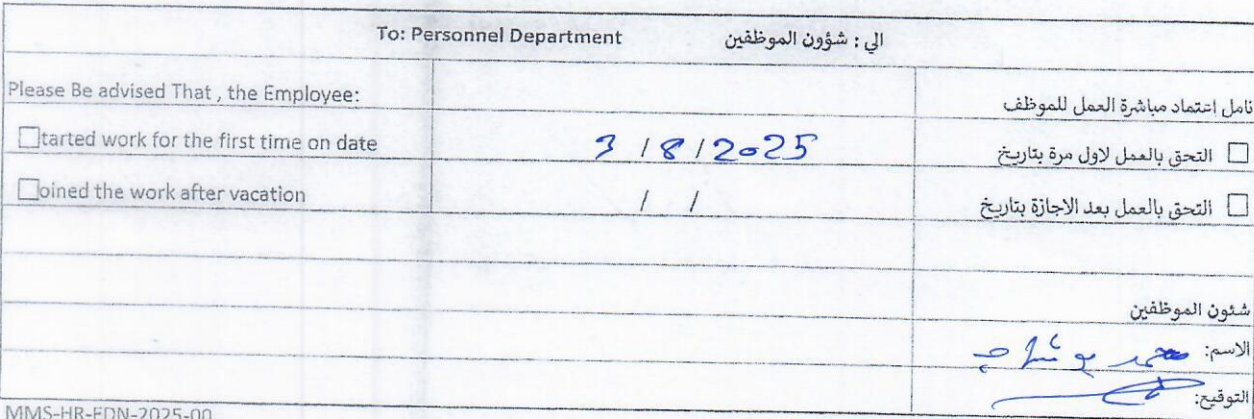 To: Personnel Department الي : شؤون الموظفين
Please Be advised That , the Employee: نامل اعتماد مباشرة العمل للموظف
tarted work for the first time on date 3 / 8 / 2025 التحق بالعمل لاول مرة بتاريخ
oined the work after vacation / / التحق بالعمل بعد الاجازة بتاريخ
شئون الموظفين
الاسم: محمد
التوقيع:
MMS-HR-EDN-2025-00